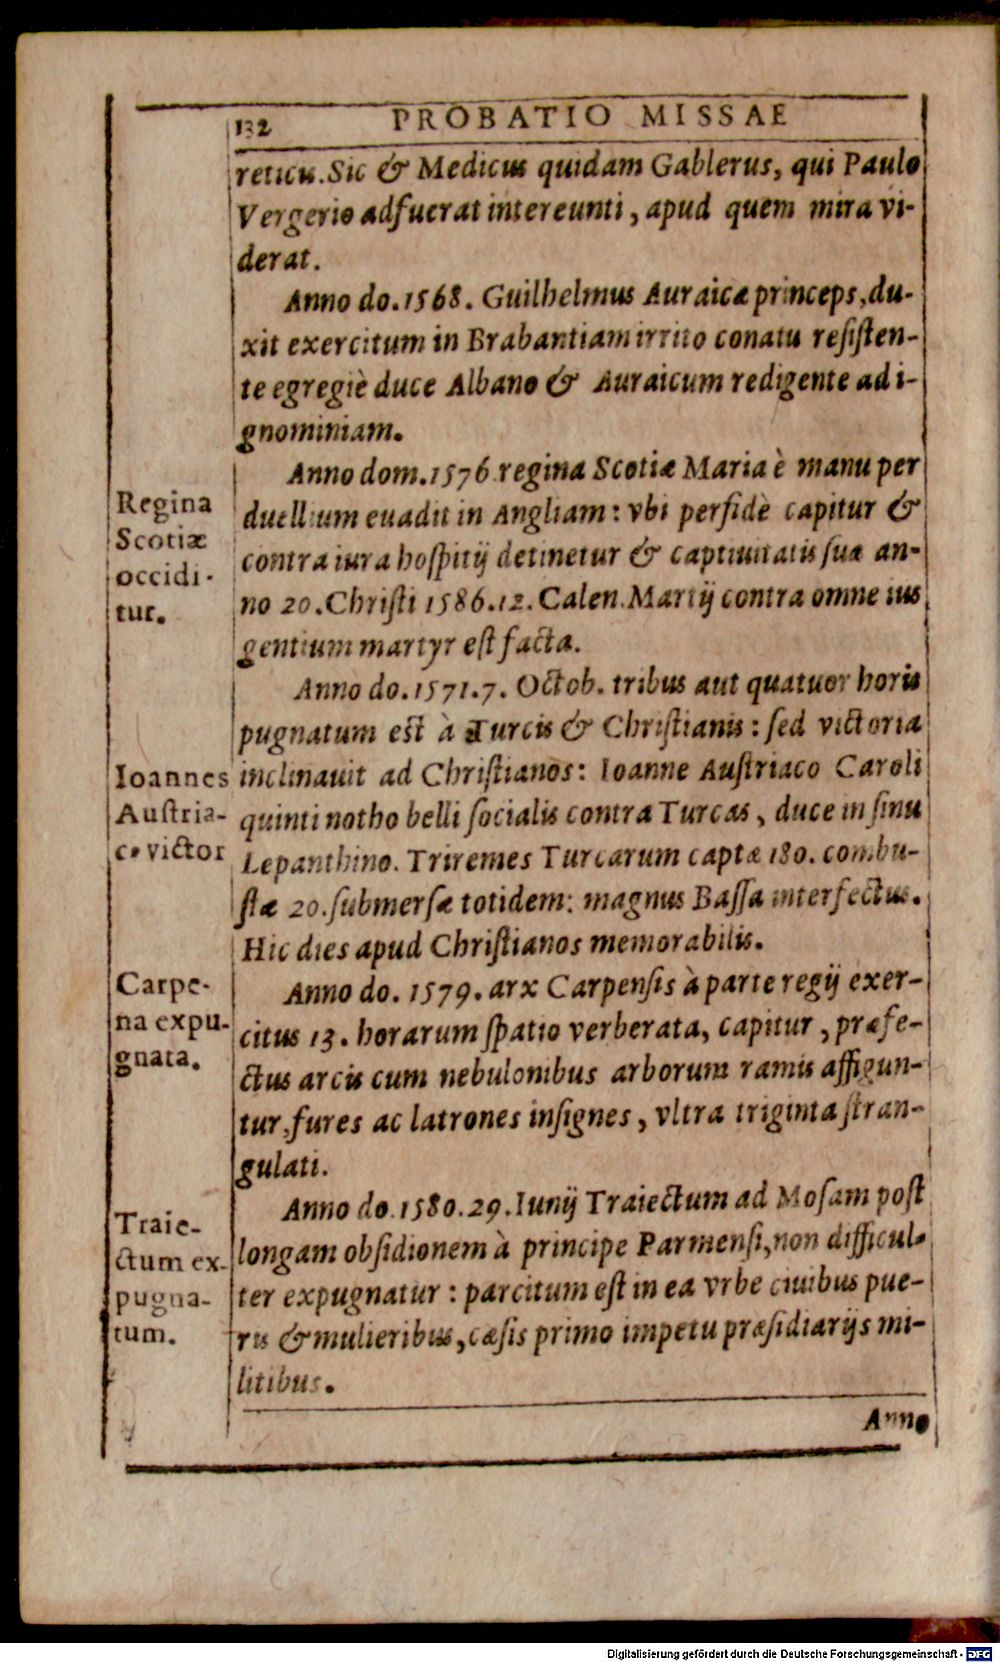 132 PROBATIO MISSAE
reticis. Sic & Medicus quidam Gablerus, qui Paulo
Vergerio adfuerat intereunti, apud quem mira vi-
derat.
Anno do. 1568. Guilhelmus Auraicæ princeps, du-
xit exercitum in Brabantiam irrito conatu resisten-
te egregiè duce Albano & Auraicum redigente ad i-
gnominiam.
Anno dom. 1576 regina Scotiæ Maria è manu per
duellium euadit in Angliam: vbi perfidè capitur &
Regina
Scotiæ
occidi-
tur.
contra iura hospitij detinetur & captiuitatis suæ an-
no 20. Christi 1586. 12. Calen. Martij contra omne ius
gentium martyr est facta.
Anno do. 1571. 7. Octob. tribus aut quatuor horis
pugnatum est à Turcis & Christianis: sed victoria
inclinauit ad Christianos: Ioanne Austriaco Caroli
Ioannes
Austria-
co victor
quinti notho belli socialis contra Turcas, duce in sinu
Lepanthino. Triremes Turcarum captæ 180. combu-
stæ 20. submersæ totidem: magnus Bassa interfectus.
Hic dies apud Christianos memorabilis.
Anno do. 1579. arx Carpensis à parte regij exer-
Carpe-
na expu-
gnata.
citus 13. horarum spatio verberata, capitur, præfe-
ctus arcis cum nebulonibus arborum ramis affigun-
tur, fures ac latrones insignes, vltra triginta stran-
gulati.
Anno do. 1580. 29. Iunij Traiectum ad Mosam post
Traie-
ctum ex-
pugna-
tum.
longam obsidionem à principe Parmensi, non difficul-
ter expugnatur: parcitum est in ea vrbe ciuibus pue-
ris & mulieribus, cæsis primo impetu præsidiarijs mi-
litibus.
Anno
Digitalisierung gefördert durch die Deutsche Forschungsgemeinschaft - DFG